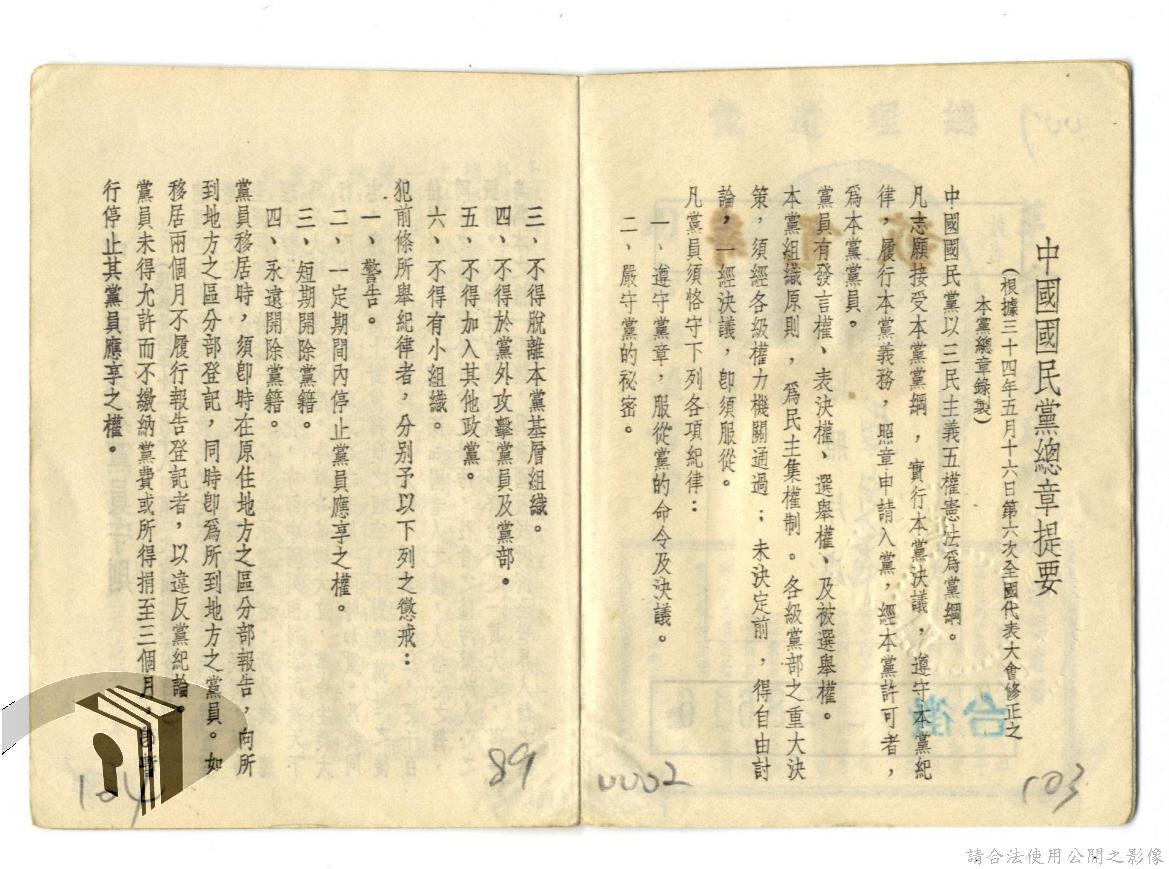 中國國民黨總章提要
(根據三十四年五月十六日第六次全國代表大會修正之
本黨總章錄製)
中國國民黨以三民主義五權憲法爲黨綱。
凡志願接受本黨黨綱，實行本黨決議，遵守本黨紀
律，履行本黨義務，照章申請入黨，經本黨許可者，
爲本黨黨員。
黨員有發言權、表決權、選舉權、及被選舉權。
本黨組織原則，爲民主集權制。各級黨部之重大決
策，須經各級權力機關通過；未決定前，得自由討
論，一經決議，卽須服從。
凡黨員須恪守下列各項紀律：
一、遵守黨章，服從黨的命令及決議。
二、嚴守黨的秘密。
0002
103
三、不得脫離本黨基層組織。
四、不得於黨外攻擊黨員及黨部。
五、不得加入其他政黨。
六、不得有小組織。
犯前條所舉紀律者，分別予以下列之懲戒：
一、警告。
二、一定期間內停止黨員應享之權。
三、短期開除黨籍。
四、永遠開除黨籍。
黨員移居時，須卽時在原住地方之區分部報告，向所
到地方之區分部登記，同時卽爲所到地方之黨員。如
移居兩個月不履行報告登記者，以違反黨紀論。
黨員未得允許而不繳納黨費或所得捐至三個月，卽暫
行停止其黨員應享之權。
89
104
台灣
007
請合法使用公開之影像